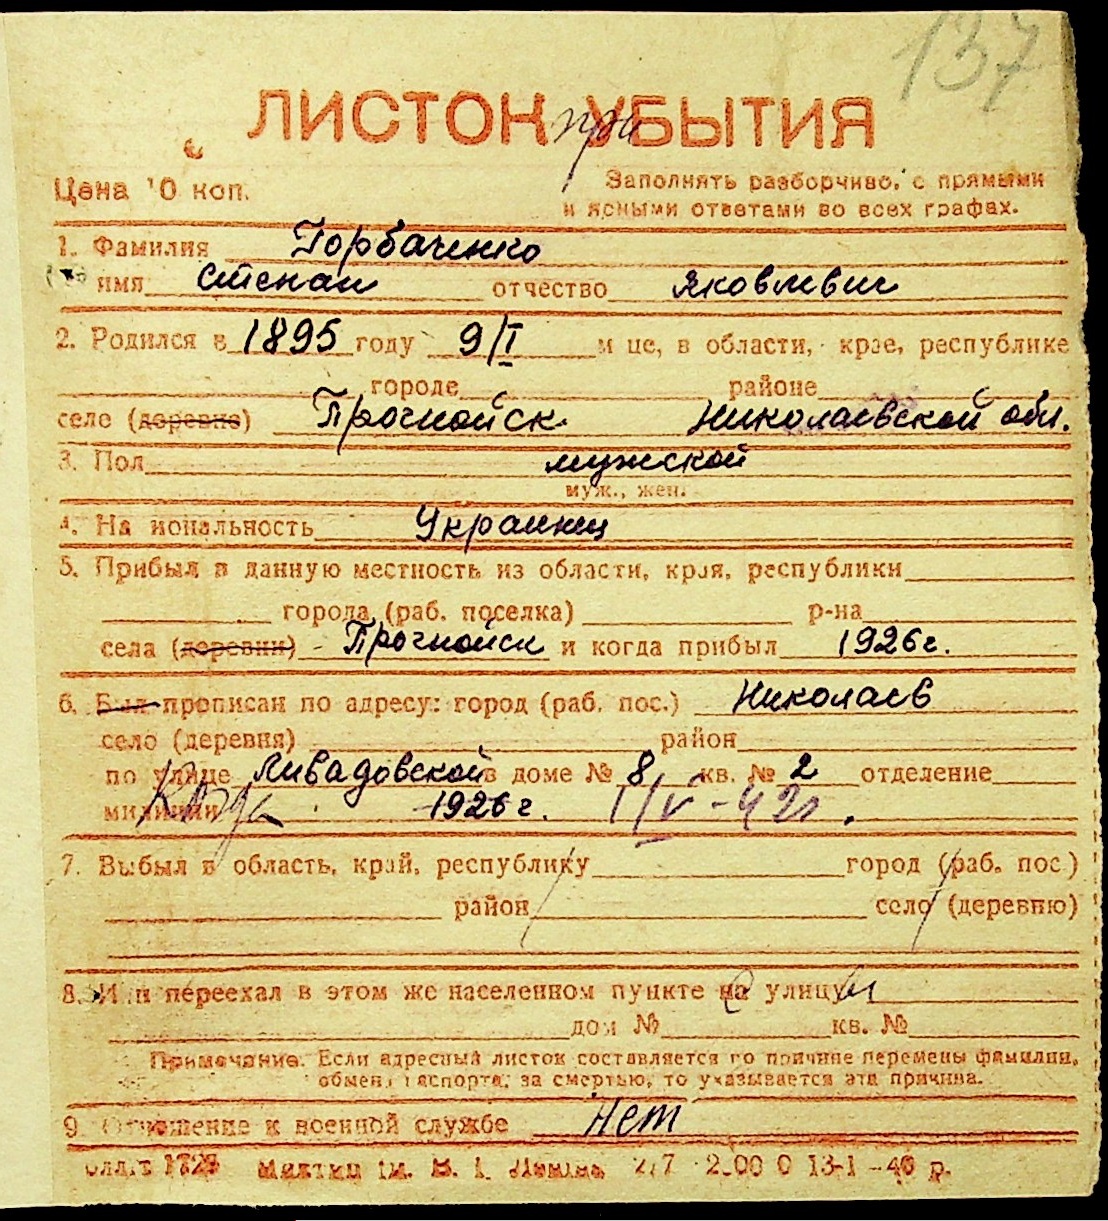 137
ЛИСТОК при УБЫТИЯ
Цена 10 коп.
Заполнять разборчиво, с прямыми
и ясными ответами во всех графах.
1. Фамилия Горбаченко
имя Степан отчество Яковлевич
2. Родился в 1895 году 9/I м це, в области, крае, республике
городе районе
село (деревне) Прогнойск Николаевской обл.
3. Пол мужской
муж., жен.
4. На иональность Украинец
5. Прибыл в данную местность из области, края, республики
города (раб. поселка) р-на
села (деревни) Прогнойск и когда прибыл 1926 г.
6. Был прописан по адресу: город (раб. пос.) Николаев
село (деревня) район
по улице Ливадовской в доме № 8 кв. № 2 отделение
милиции Когда 1926 г. I/V-42г.
7. Выбыл в область, край, республику город (раб. пос.)
район село (деревню)
8. Или переехал в этом же населенном пункте на улицу
дом № кв. №
Примечание. Если адресный листок составляется по причине перемены фамилии,
обмена паспорта, за смертью, то указывается эта причина.
9. Отношение к военной службе Нет
13-1-40 р.